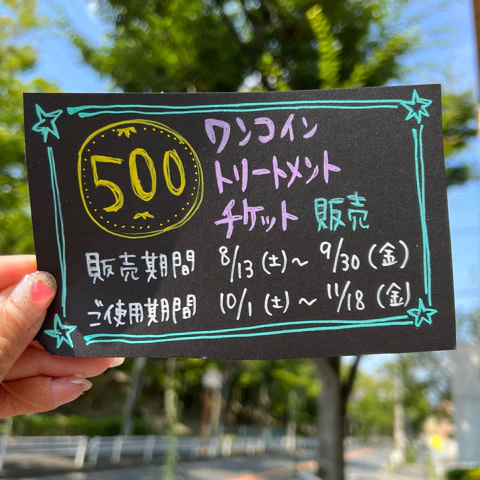 500
ワンコイン
トリートメント
チケット 販売
販売期間 8/13(土)〜 9/30(金)
ご使用期間 10/1(土)〜 11/18(金)